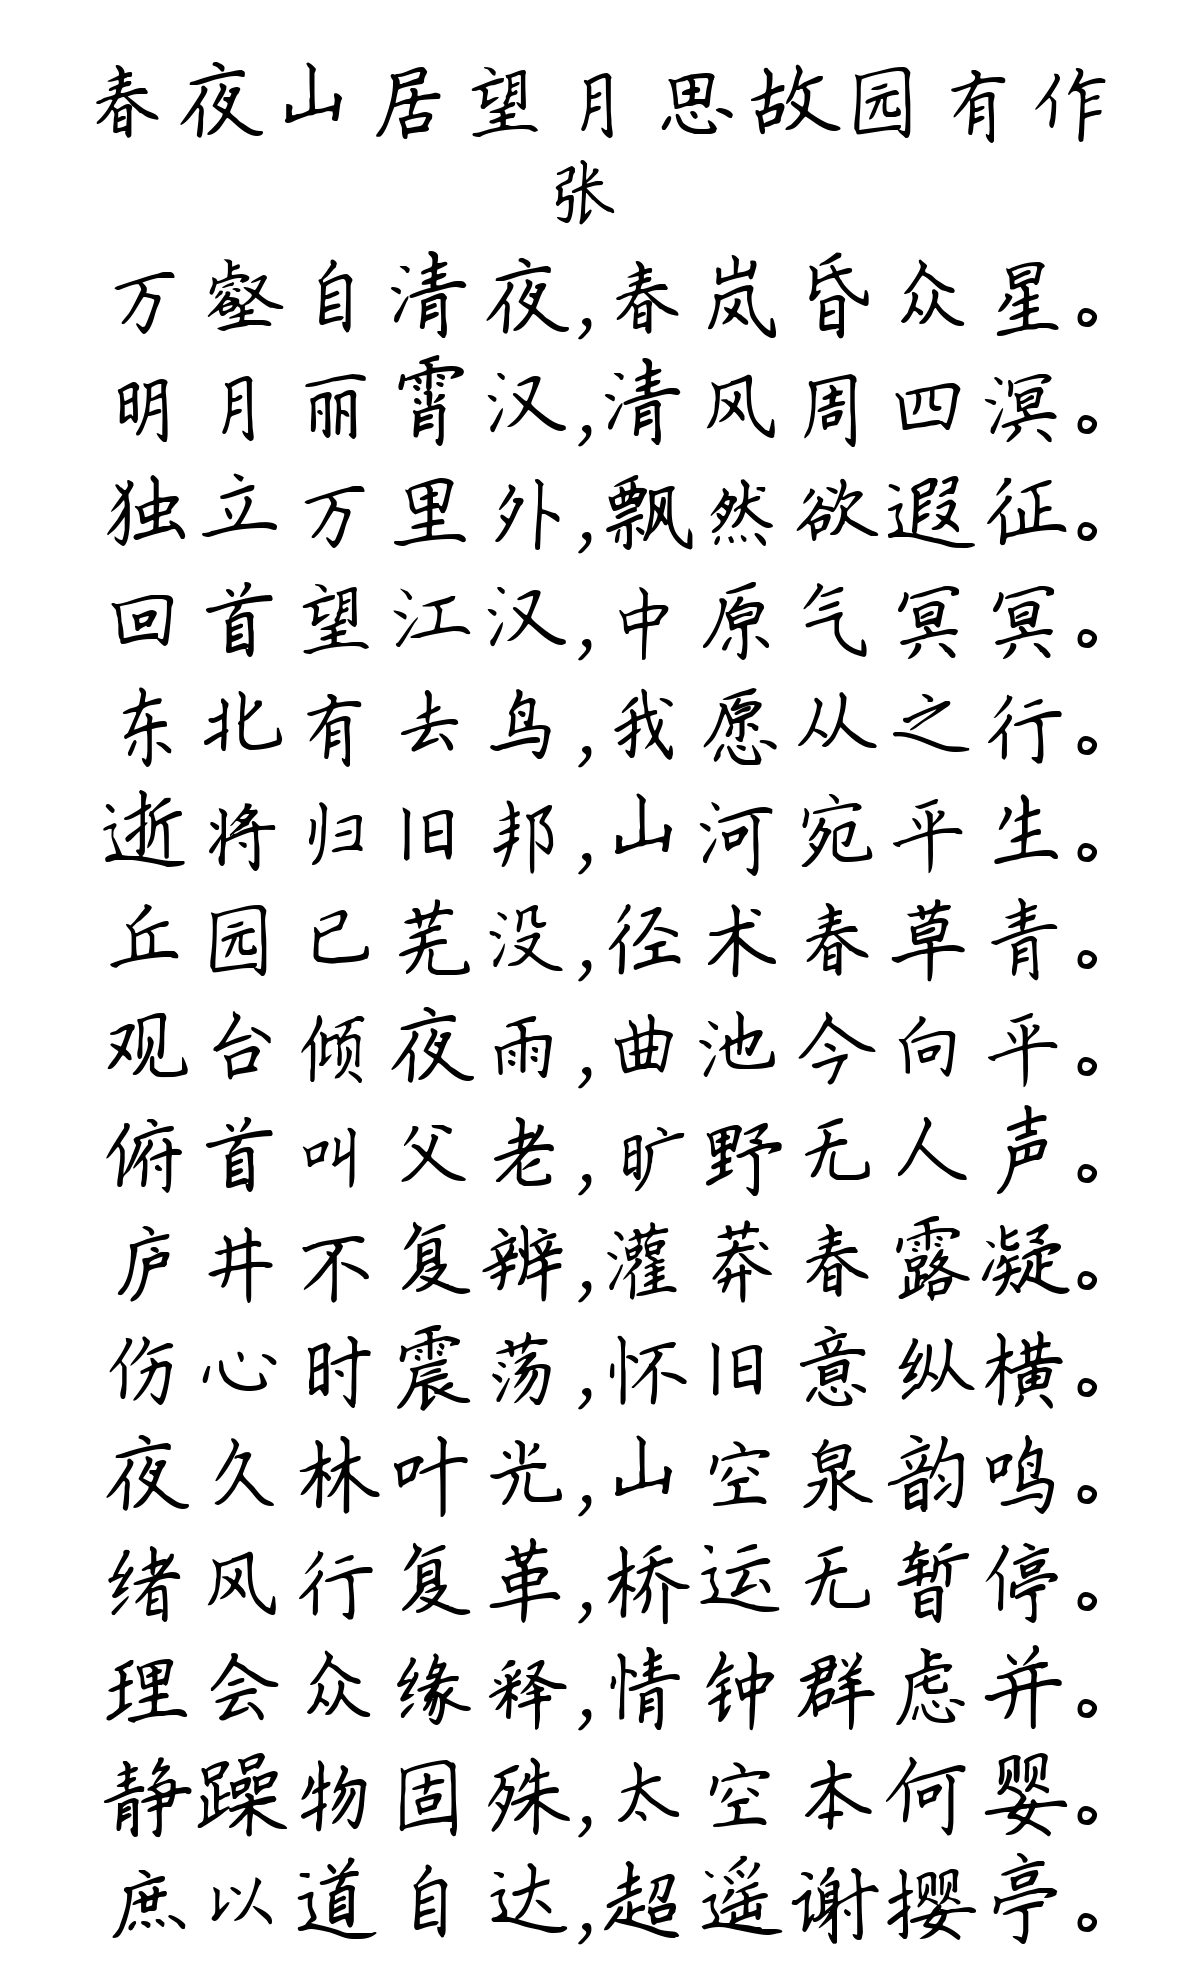 春夜山居望月思故园有作
张
万壑自清夜,春岚昏众星。
明月丽霄汉,清风周四溟。
独立万里外,飘然欲遐征。
回首望江汉,中原气冥冥。
东北有去鸟,我愿从之行。
逝将归旧邦,山河宛平生。
丘园已芜没,径术春草青。
观台倾夜雨,曲池今向平。
俯首叫父老,旷野无人声。
庐井不复辨,灌莽春露凝。
伤心时震荡,怀旧意纵横。
夜久林叶光,山空泉韵鸣。
绪风行复革,桥运无暂停。
理会众缘释,情钟群虑并。
静躁物固殊,太空本何婴。
庶以道自达,超遥谢撄亭。